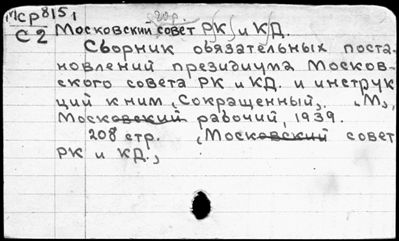 Мср815,
гор.
С2 Московский совет РК и КД.
Сборник обязательных поста-
новлений президиума Москов-
ского совета РК и КД. и инструк
ций к ним, Сокращенный,. "М.,
Московский рабочий, 1939.
208 стр. (Московский совет
РК и КД.,